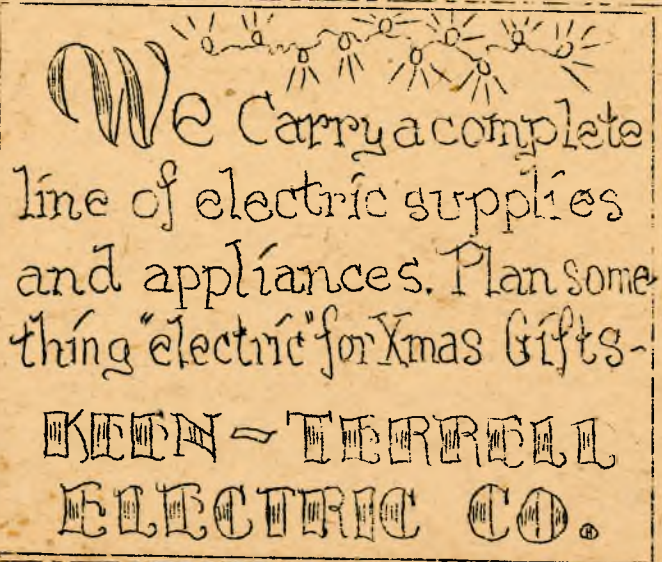 We Carry a complete
line of electric supplies
and appliances. Plan some-
thing "electric" for Xmas Gifts-
KEEN-TERRELL
ELECTRIC CO.